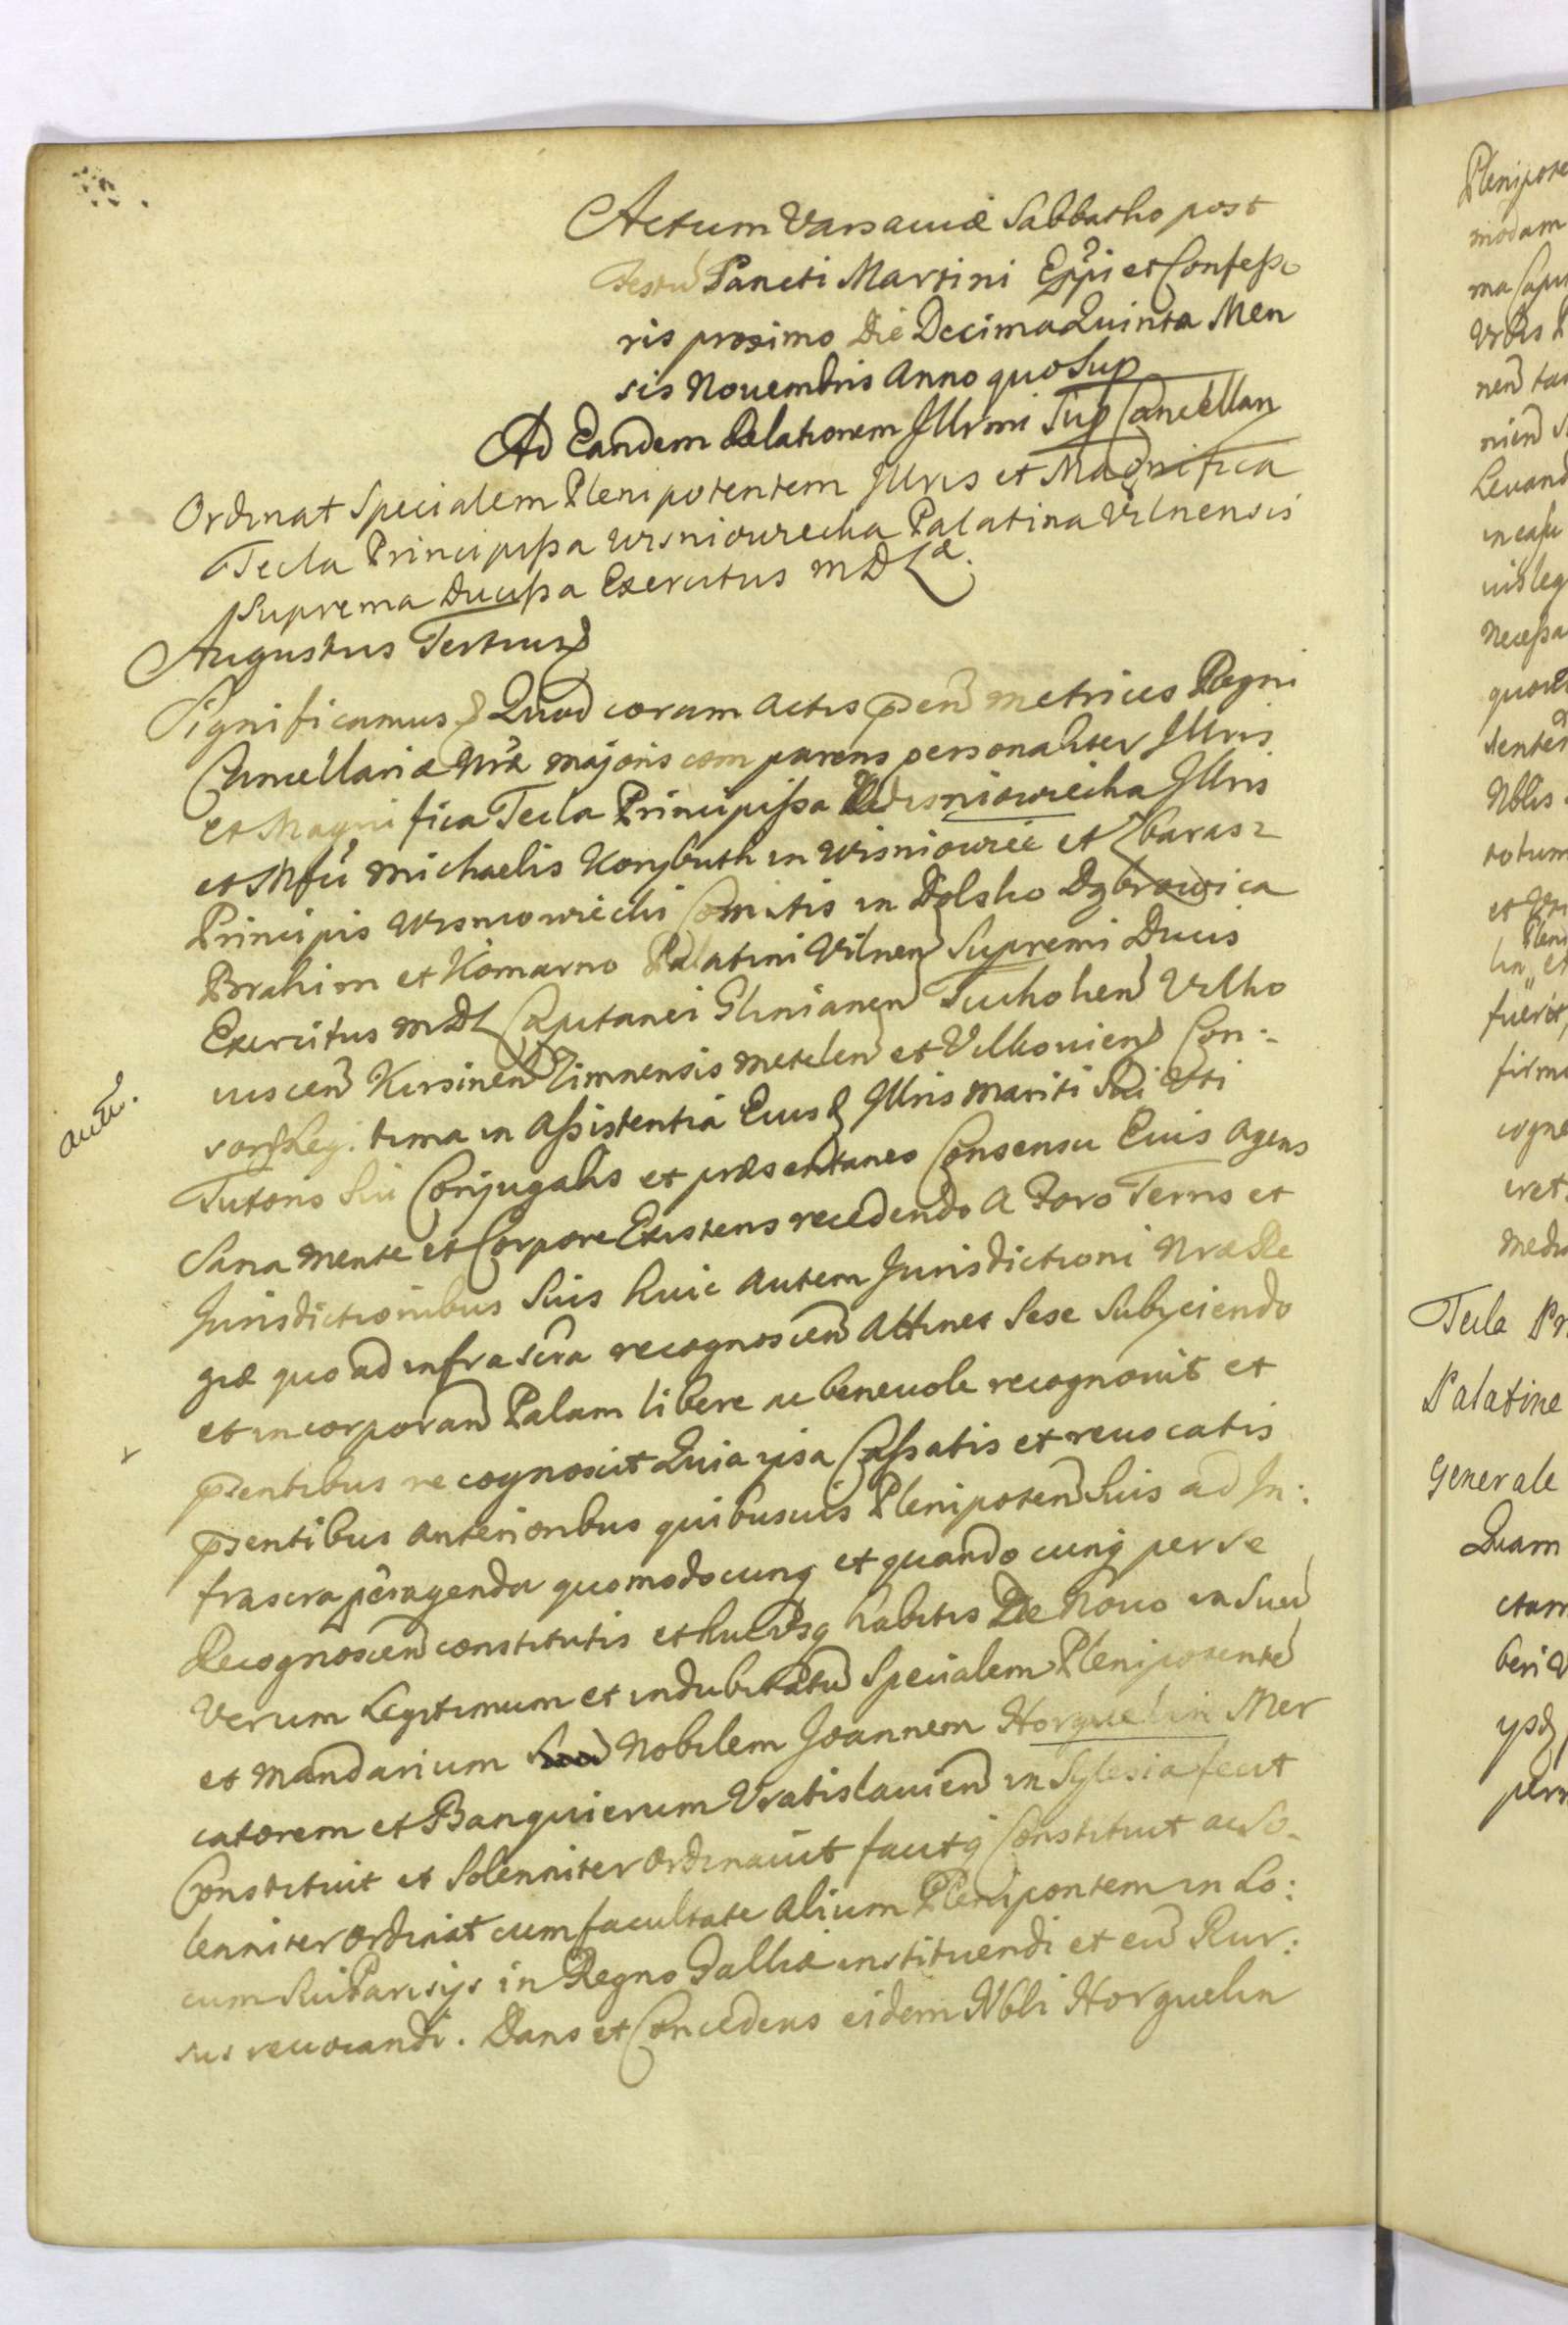 Actum Varsaviæ Sabbatho post
Festũ Sancti Martini Eppi et Confesso
ris proximo Die Decima Quinta Men
sis Novembris Anno quo Sup
Ad Eandem Relationem Illrmi Sup Cancellarÿ
Ordinat Specialem Plenipotentem Illris et Magnifica
Tecla Principissa Wisniowiecka Palatina Vilnensis
Suprema Ducissa Exercitus MDLæ.
Augustus Tertius
Significamus Quod coram Actis pñen Metrices Regni
Cancellariæ Nræ majoris comparens personaliter Illris
et Magnifica Tecla Principissa Wisniowiecka Illris
et Mfci Michaelis Korybuth in Wisniowiec et Zbarasz
Principis Wisniowiecki Comitis in Dolsko Dąbrowica
Brahim et Komarno Palatini Vilnen Supremi Ducis
Exercitus MDL Capitanei Glinianen Tucholien Vilko
viscen Kirsinen Zimnensis Metelen et Volkovien Con:
sors Legitima in Assistentia Eiusd Illris Mariti Sui Uti
Tutoris Sui Conjugalis et præsentaneo Consensu Eius Agens
Sana mente et Corpore Existens recedendo A Foro Terris et
Jurisdictionibus Suis huic autem Jurisdictioni Nræ Re
giæ quo ad infrascra recognoscen Attinet Sese Subjiciendo
et incorporan Palam libere ac benevole recognovit et
pñentibus recognoscit Quia ipsa Cassatis et revocatis
pñentibus anterioribus quibusvis Plenipoten Suis ad In:
frascra peragenda quomodocunq et quandocunq per se
Recognoscen constitutis et hucusq habitis De Novo in Suũ
Verum Legitimum et indubitatũ Specialem Plenipotentẽ
et Mandarium Nobilem Joannem Horguelin Mer
catorem et Banquierum Vratislavien in Sylesia fecit
Constituit et Solenniter ordinavit facitq Constituit ac So-
lenniter ordinat cum facultate alium Plenipontem in Lo:
cum Sui Parisijs in Regno Galliæ instituendi et eũ Rur:
sus revocandi. Dans et Concedens eidem Nbli Horguelin
Tecla Pr
Palatine
Generale
Quam